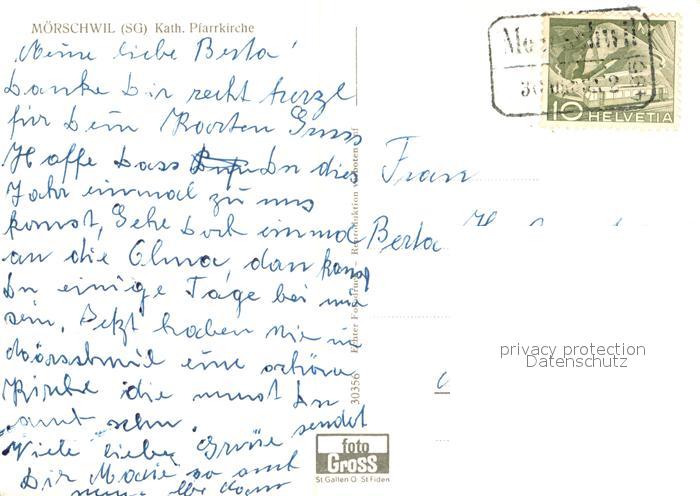 MÖRSCHWIL (SG) Kath. Pfarrkirche
Meine liebe Berta!
Danke Dir recht herzl
für Dein Kaarten Gruss
Hoffe Dass Du dies
Jahr einmal zu uns
komst, Gehe Doch einmal
an die Olma, dan kansd
Du einige Tage bei mir
sein. Jetzt haben sie in
Mörschwil eine schöne
Kirche die must Du
amt sehn.
Viele liebe Grüse sendet
Dir
Frau
Berta
Echter Fotodruck - Reproduktion verboten
30356
foto
Gross
St Gallen O. St Fiden
10
HELVETIA
privacy protection
Datenschutz